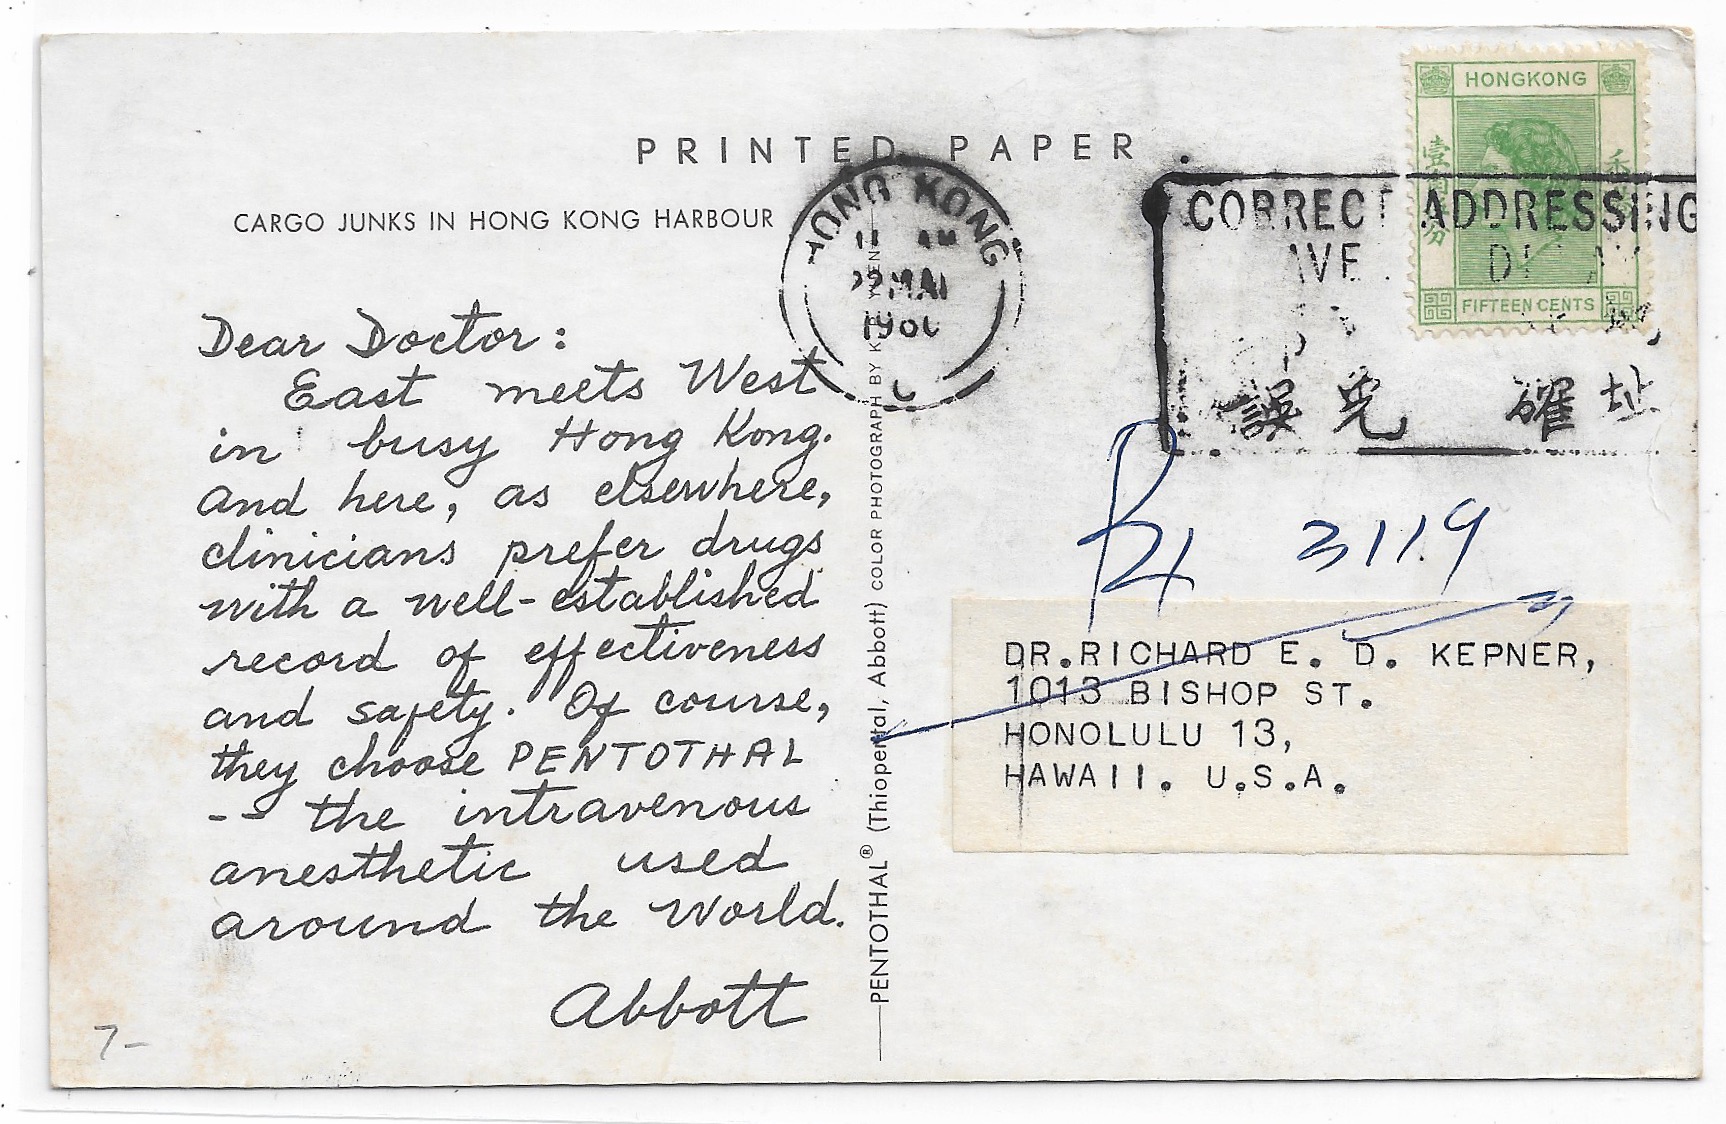 HONGKONG
壹
香
FIFTEEN CENTS
PRINTED PAPER
CARGO JUNKS IN HONG KONG HARBOUR
HONG KONG
11 AM
22 MAR
CORRECT ADDRESSING
誤 免 確 址
Dear Doctor:
East meets West
in busy Hong Kong.
And here, as elsewhere,
clinicians prefer drugs
with a well-established
record of effectiveness
and safety. Of course,
they choose PENTOTHAL
-- the intravenous
anesthetic used
around the World.
Abbott
7-
PENTOTHAL® (Thiopental, Abbott) COLOR PHOTOGRAPH BY
3119
DR.RICHARD E. D. KEPNER,
1013 BISHOP ST.
HONOLULU 13,
HAWAII. U.S.A.